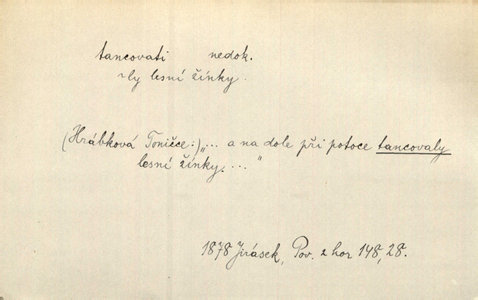 tancovati nedok.
~ly lesní žínky.
(Hrábková Toničce:) „... a na dole při potoce tancovaly
lesní žínky. ..."
1878 Jirásek, Pov. z hor 148, 28.